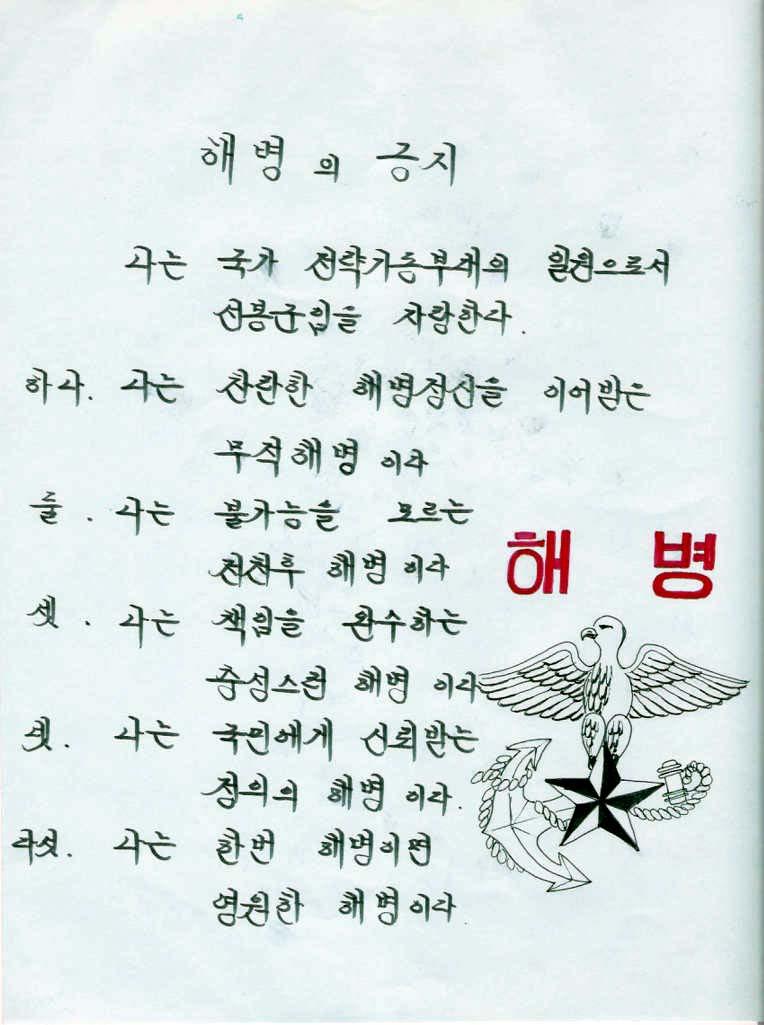 해병의 긍지
나는 국가 전략기동부대의 일원으로서
선봉군임을 자랑한다.
하나. 나는 찬란한 해병정신을 이어받은
무적해병 이다
둘. 나는 불가능을 모르는
전천후 해병 이다
해 병
셋. 나는 책임을 완수하는
충성스런 해병 이다
넷. 나는 국민에게 신뢰받는
정의의 해병 이다.
다섯. 나는 한번 해병이면
영원한 해병이다.